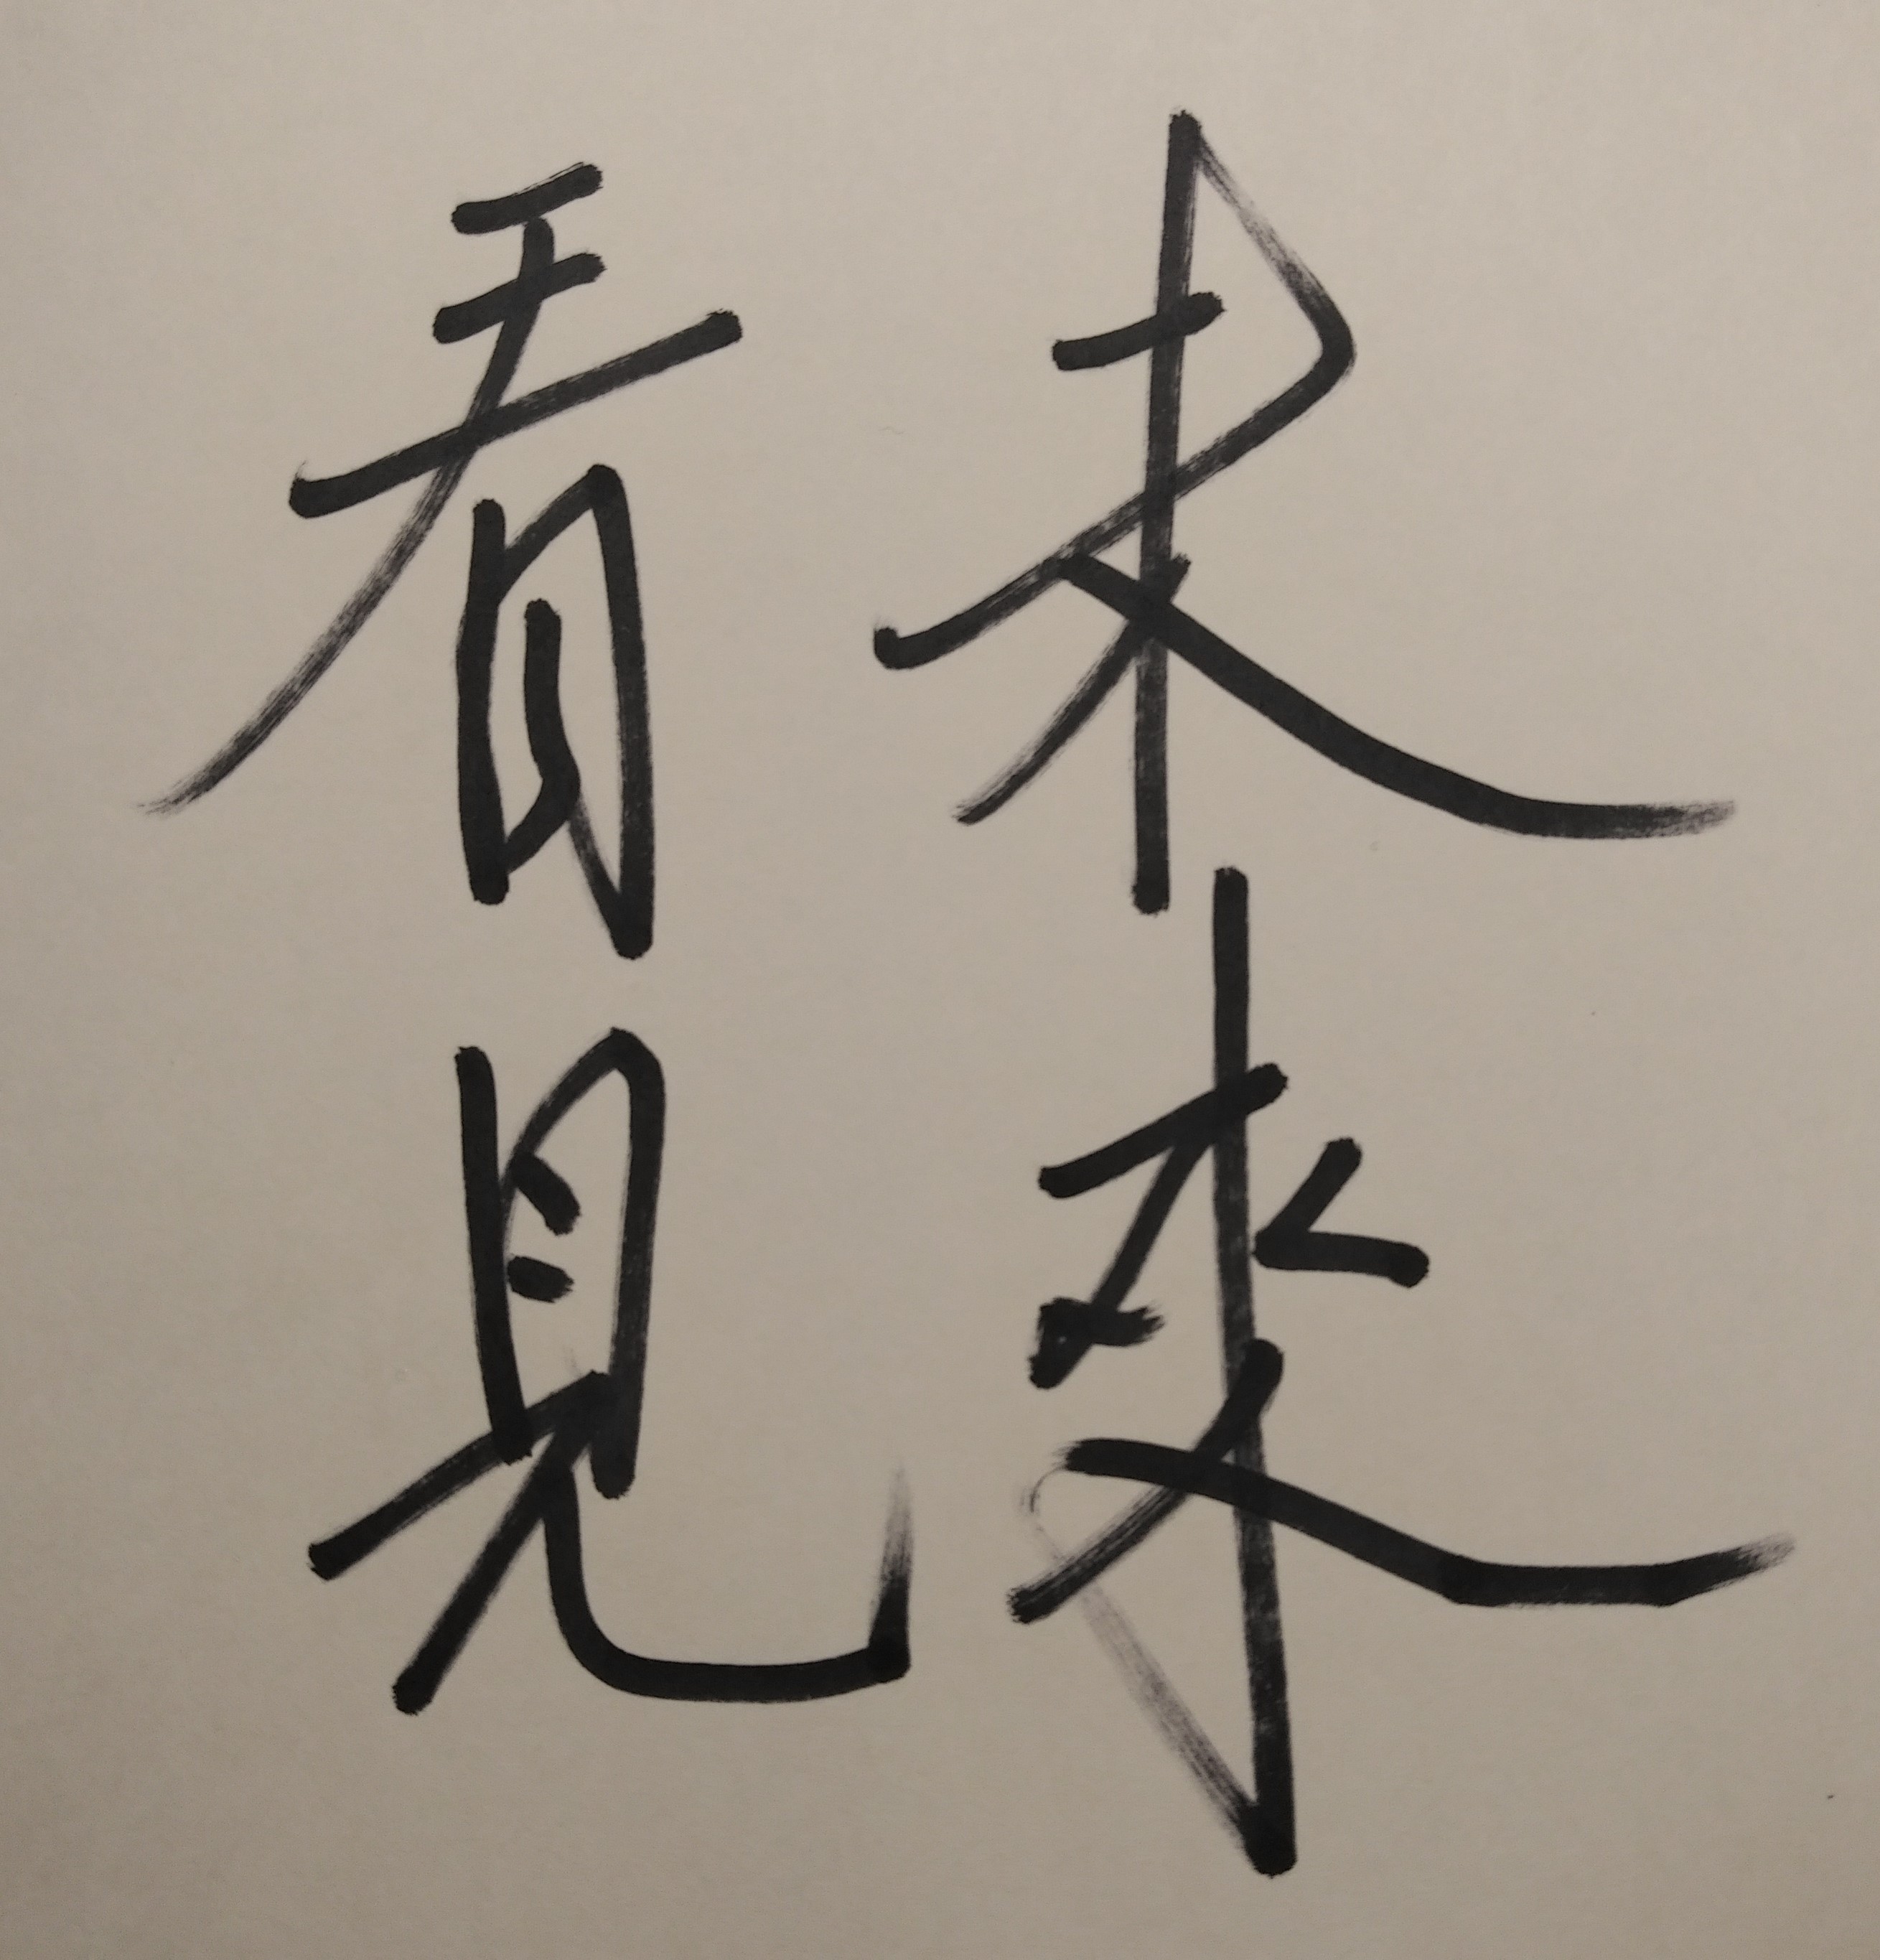 看見
未來